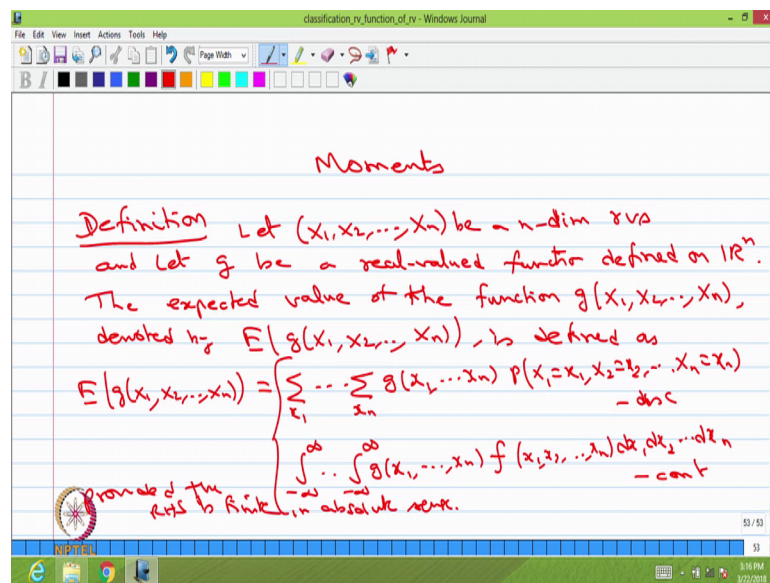 classification_rv_function_of_rv - Windows Journal
File Edit View Insert Actions Tools Help
Page Width
B I
Moments
Definition Let (X1, X2, ..., Xn) be a n-dim rvs
and let g be a real-valued function defined on IR^n.
The expected value of the function g(X1, X2, .., Xn),
denoted by E(g(X1, X2, .., Xn)), is defined as
E(g(X1, X2, .., Xn)) = { Σ_{x1} ... Σ_{xn} g(x1, ... xn) P(X1=x1, X2=x2, .. Xn=xn)
- disc
∫_{-∞}^{∞} .. ∫_{-∞}^{∞} g(x1, ..., xn) f(x1, x2, .., xn) dx1 dx2 ... dxn
- cont
provided the
RHS is finite in absolute sense.
NPTEL
53 / 53
53
3:16 PM
3/22/201